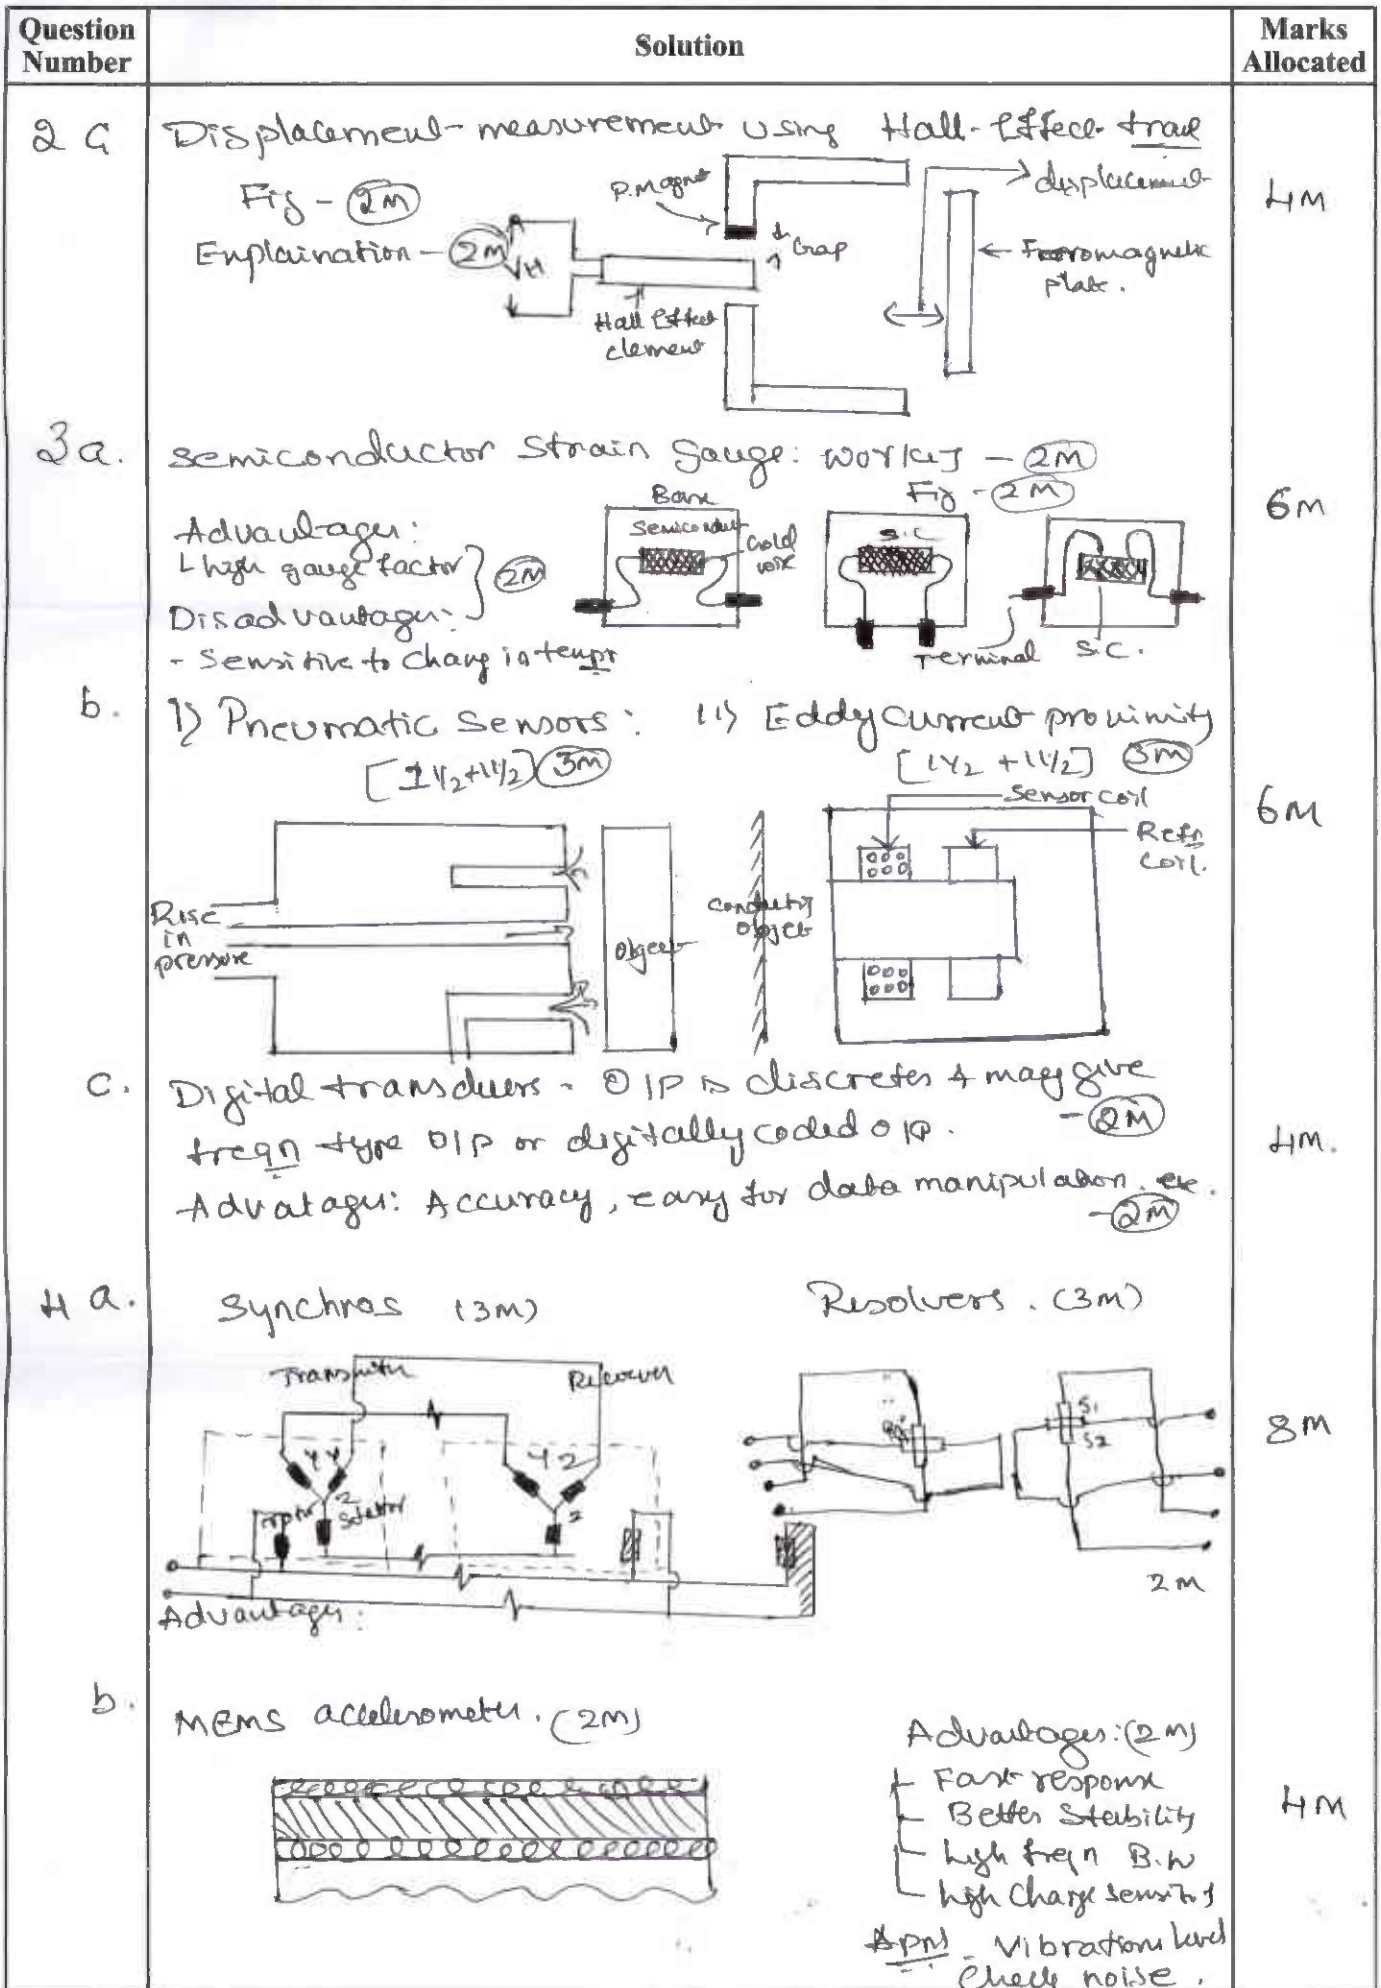 Question Number
Solution
Marks Allocated
2 C
Displacement measurement using Hall-Effect
4M
Fig - 2M
Explaination - 2M
P.Magnet
Gap
displacement
Ferromagnetic
plate.
VH
Hall Effect
element
3a.
Semiconductor Strain Gauge: - 2M
Fig - 2M
6M
Advantages:
high gauge factor
2M
Disadvantages:
- Sensitive to change in tempr
Base
Semiconduct
Gold
wire
S.C
Terminal
S.C.
b.
i) Pneumatic Sensors: ii) Eddy Current proximity
[1 1/2 + 1 1/2] 3M
[1 1/2 + 1 1/2] 3M
6M
Rise
in
pressure
Object
Conducting
Object
Sensor coil
Refn
Coil.
c.
Digital transducers - O/P is discretes & may give
freqn type O/P or digitally coded O/P.
- 2M
4M.
Advatages: Accuracy, easy for data manipulation. etc.
- 2M
4 a.
Synchros (3M)
Resolvers. (3M)
8M
Transmitter
Receiver
Stator
S1
S2
2M
Advantages.
b.
MEMS accelerometer. (2M)
4M
Advantages: (2M)
Fast response
Better Stability
high freqn B.W
high Charge Sensitivity
Apns - Vibrations level
Check noise.